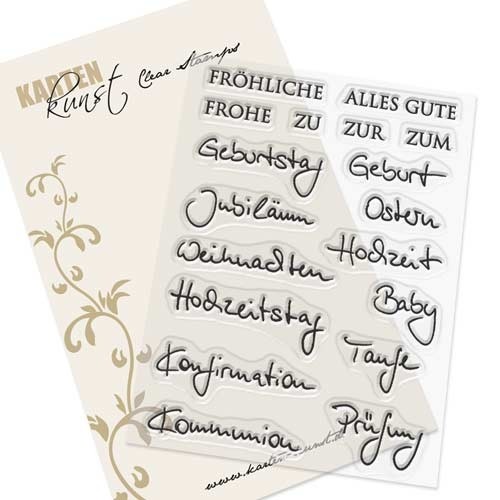 KARTEN
kunst Clear Stamps
FRÖHLICHE ALLES GUTE
FROHE ZU ZUR ZUM
Geburtstag Geburt
Jubiläum Ostern
Weihnachten Hochzeit
Hochzeitstag Baby
Konfirmation Taufe
Kommunion Prüfung